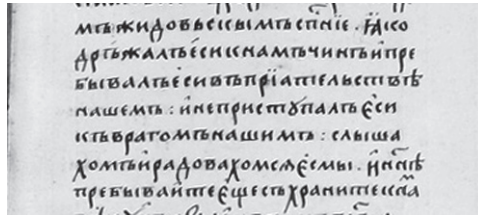 мъжидовьскымъсп҃нїе. ꙗ҆ко
дръжалъєсикнамъчинъи҆пре
бывалъєсивъпрїатїельствѣ
нашемъ : и҆неприступалъє҆си
къврагомънашимъ : слыша
хомъи҆радовахомсѧє҆смы. и҆нн҃ѣ
пребываитеє҆щесъхранитесѧ